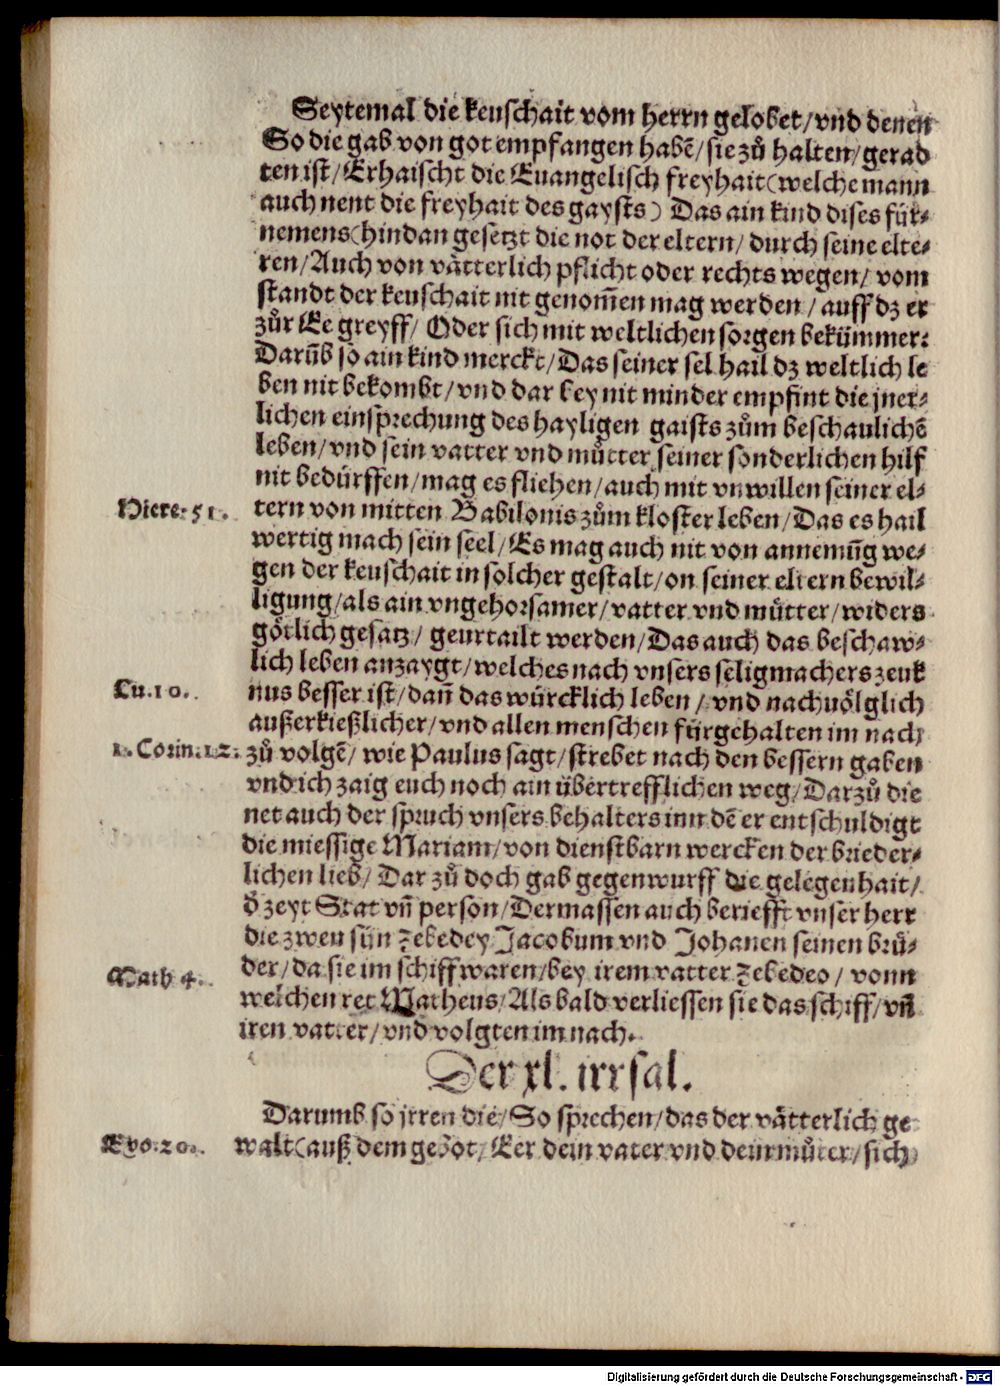 Seytemal die keuschait vom herrn gelobet/vnd denen
So die gab von got empfangen habē/sie zů halten/gerad
ten ist/Erhaischt die Euangelisch freyhait(welche mann
auch nent die freyhait des gaysts) Das ain kind dises für⸗
nemens(hindan gesetzt die not der eltern/durch seine elte⸗
ren/Auch von vätterlich pflicht oder rechts wegen/vom
standt der keuschait nit genom̄en mag werden/auff dz er
zůr Ee greyff/Oder sich mit weltlichen sorgen bekümmer:
Darūb so ain kind merckt/Das seiner sel hail dz weltlich le
ben nit bekombt/vnd dar bey nit minder empfint die jner⸗
lichen einsprechung des hayligen gaists zům beschaulichē
leben/vnd sein vatter vnd můtter seiner sonderlichen hilf
nit bedürffen/mag es fliehen/auch mit vnwillen seiner el⸗
Hiere. 51. tern von mitten Babilonis zům kloster leben/Das es hail
wertig mach sein seel/Es mag auch nit von annemūg we⸗
gen der keuschait in solcher gestalt/on seiner eltern bewil⸗
ligung/als ain vngehorsamer/vatter vnd můtter/widers
götlich gesatz/geurtailt werden/Das auch das beschaw⸗
lich leben anzaygt/welches nach vnsers seligmachers zeuk
Lu. 10. nus besser ist/dan̄ das würcklich leben/vnd nachuölglich
außerkießlicher/vnd allen menschen fürgehalten im nach
1. Corin. 12. zů volgē/wie Paulus sagt/strebet nach den bessern gaben
vnd ich zaig euch noch ain übertrefflichen weg/Darzů die
net auch der spruch vnsers behalters inn dē er entschuldigt
die miessige Mariam/von dienstbarn wercken der brieder⸗
lichen lieb/Dar zů doch gab gegenwurff die gelegenhait/
d̄ zeyt Stat vn̄ person/Dermassen auch beriefft vnser herr
die zwen sün Zebedey Jacobum vnd Johanen seinen brů⸗
Math 4. der/da sie im schiff waren/bey irem vatter Zebedeo/vonn
welchen ret Matheus/Als bald verliessen sie das schiff/vn̄
iren vatter/vnd volgten im nach.
Der xl. irrsal.
Darumb so jrren die/So sprechen/das der vätterlich ge
Exo. 20. walt(auß dem gebot/Eer dein vater vnd dein můter/sich
Digitalisierung gefördert durch die Deutsche Forschungsgemeinschaft - DFG